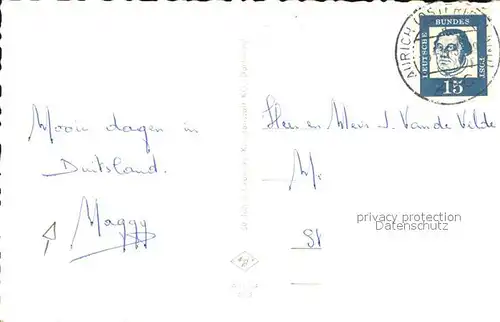 AURICH (OSTFRIESLAND)
DEUTSCHE BUNDESPOST
15
Mooie dagen in
Duitsland.
Maggy
Heer en Mevr J. Van de Velde
Mr
St
privacy protection
Datenschutz